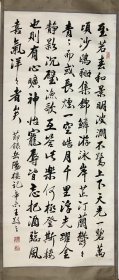 至若春和景明波澜不驚上下天光一碧萬
頃沙鷗翔集錦鱗游泳岸芷汀蘭郁郁
青青而或長煙一空皓月千里浮光耀金
静影沉璧漁歌互答此樂何極登斯樓
也則有心曠神怡寵辱皆忘把酒臨風
喜氣洋洋者矣 節録岳陽樓記